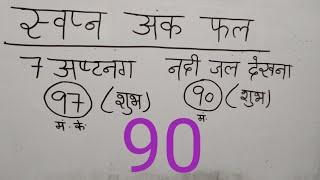 स्वप्न अंक फल
7 अष्टनग नदी जल देखना
97 (शुभ) 90 (शुभ)
म. के. म.
90